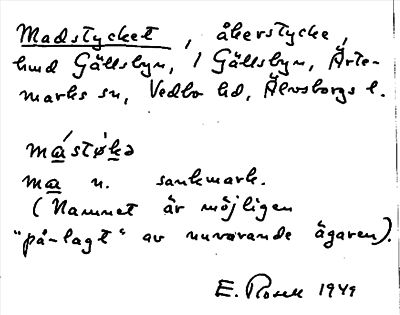 Madstycket, åkerstycke,
hmd Gällsbyn, 1 Gällsbyn, Ärte-
marks sn, Vedbo hd, Älvsborgs l.
má̲stø̀k̲ə
ma̲ n. sankmark.
(Namnet är möjligen
"på-lagt" av nuvarande ägaren).
E. Rosell 1949